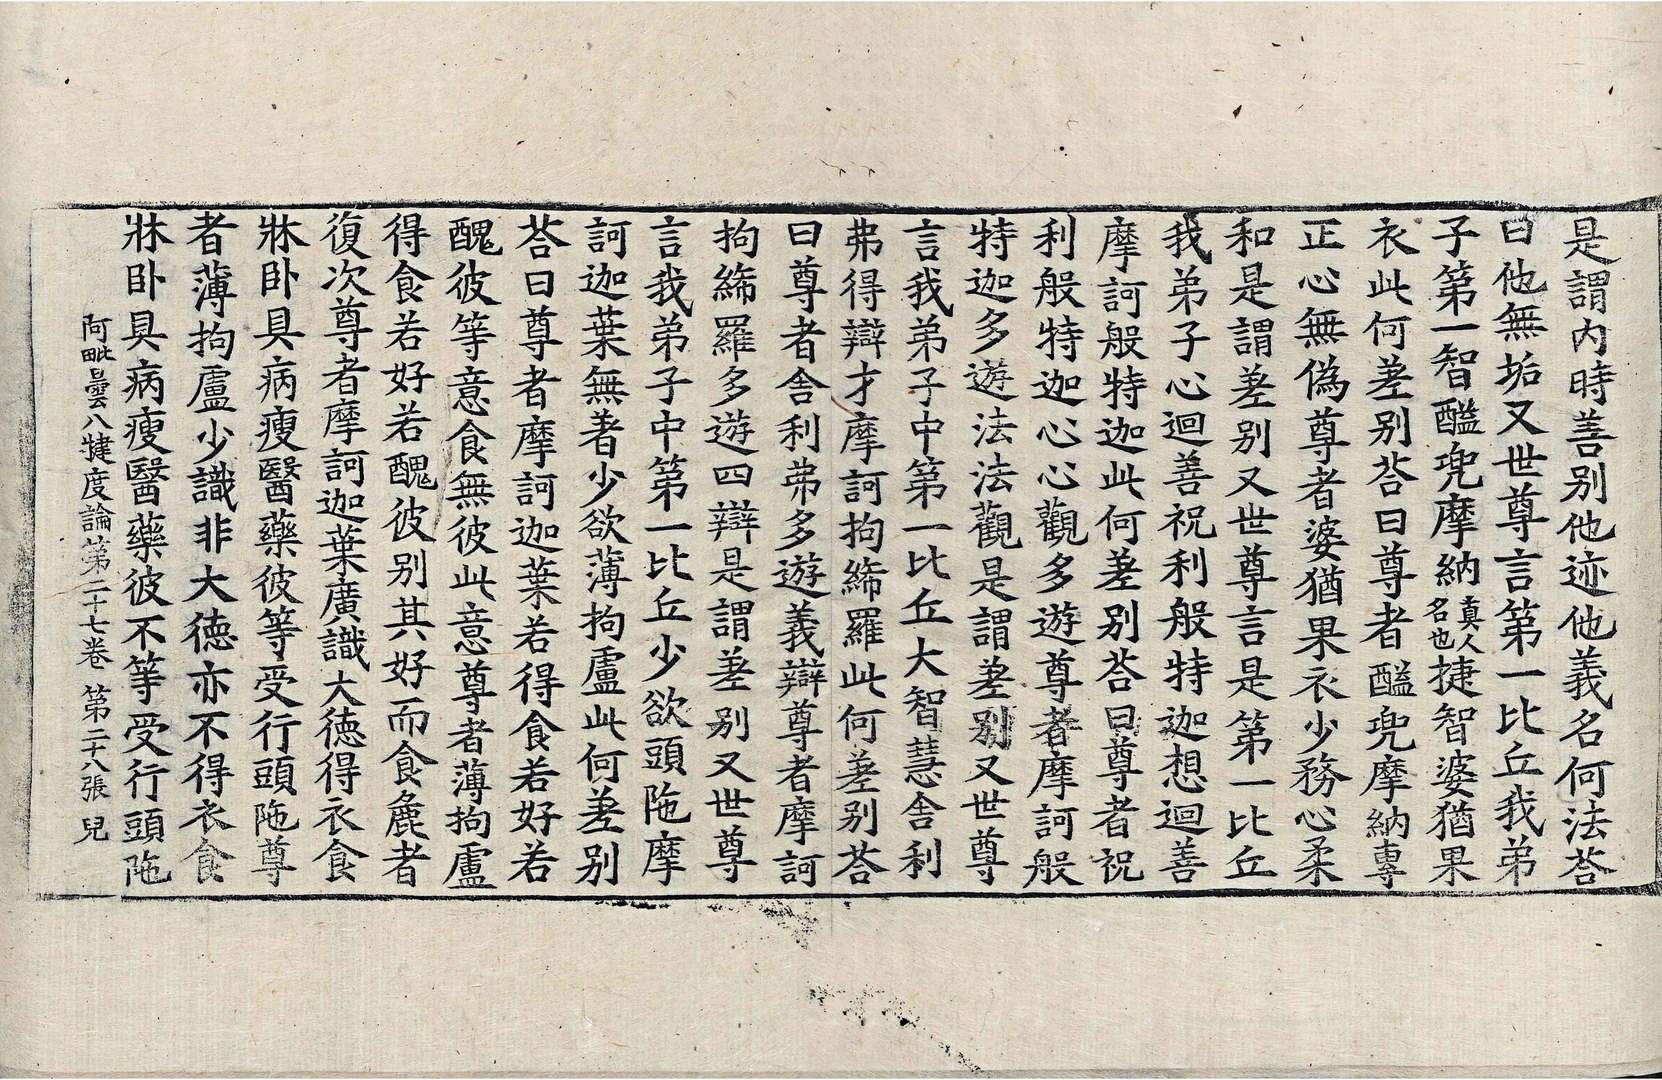 是謂内時善别他迹他義名何法荅
曰他無垢又世尊言第一比丘我弟
子第一智醯兜摩納真人名也捷智婆猶果
衣此何差别荅曰尊者醯兜摩納專
正心無偽尊者婆猶果衣少務心柔
和是謂差别又世尊言是第一比丘
我弟子心迴善祝利般特迦想迴善
摩訶般特迦此何差别荅曰尊者祝
利般特迦心心觀多遊尊者摩訶般
特迦多遊法法觀是謂差别又世尊
言我弟子中第一比丘大智慧舍利
弗得辯才摩訶拘絺羅此何差别荅
曰尊者舎利弗多遊義辯尊者摩訶
拘絺羅多遊四辯是謂差别又世尊
言我弟子中第一比丘少欲頭陁摩
訶迦葉無著少欲薄拘盧此何差别
荅曰尊者摩訶迦葉若得食若好若
醜彼等意食無彼此意尊者薄拘盧
得食若好若醜彼别其好而食麁者
復次尊者摩訶迦葉廣識大德得衣食
牀卧具病瘦醫藥彼等受行頭陁尊
者薄拘盧少識非大德亦不得衣食
牀卧具病瘦醫藥彼不等受行頭陁
阿毗曇八犍度論第二十七卷 第二十八張 兒